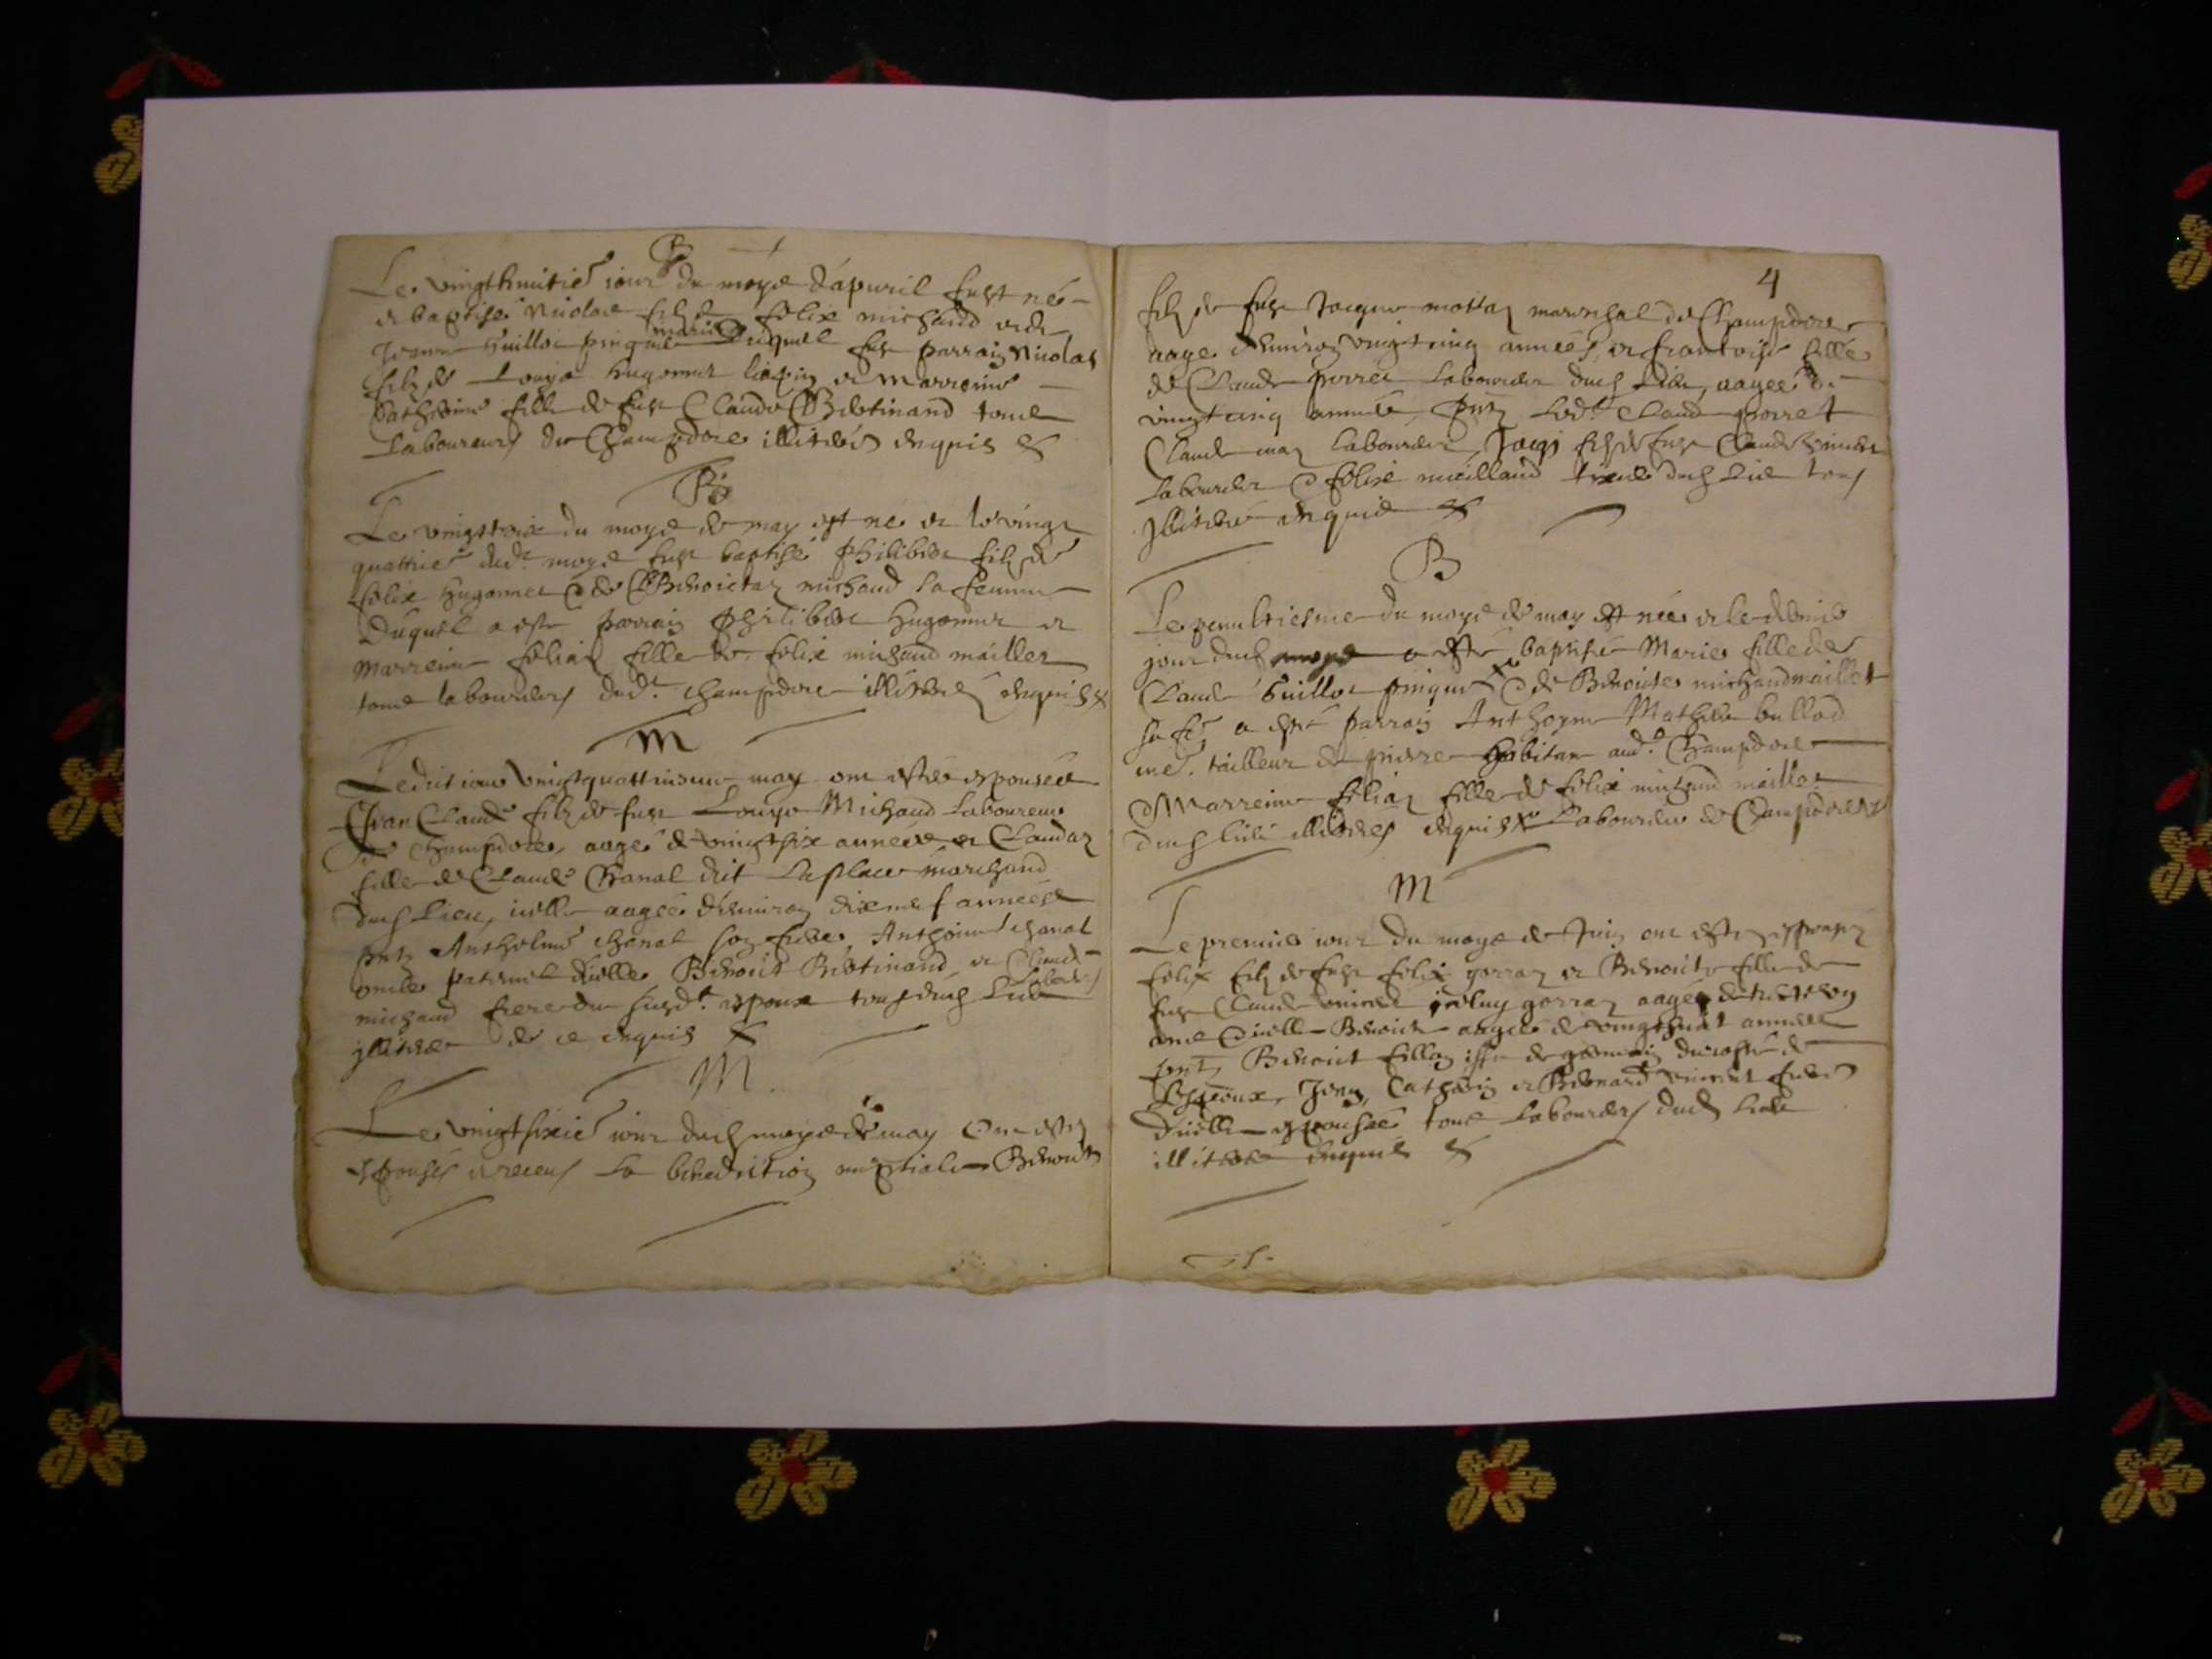 B
Le vingthuitie jour du moys d'apvril fust né
et baptisé Nicolas filz de felix michaud et de
Jeanne Guillot pingue mariés duquel fut parrain Nicolas
filz de Louys hugonnet liapin et marreine
Catherine fille de fust Claude Bertinand tous
Laboureurs de Champdore illiterés enquis &
B
Le vingttrois du moys de may est né et le vingt
quattrie dud.t moys fust baptisé Philibert filz de
felix hugonnet & de Benoictaz michaud sa femme
Duquel a este parrain Philibert hugonnet et
marreine feliaz fille de felix michaud maillet
tous laboureurs dud.t champdore illiterés enquis &
M
Ledict jour vingtquattriesme may ont estés espousés
Jean Claude filz de fust Louys Michaud Laboureur
de Champdore, aagé de vingtsix années et Claudaz
fille de Claude Chanal dit Laplace marchand
dud Lieu, icelle aagée d'environ dixneuf années
pntz Anthelme chanal son frere, Anthoine chanal
oncle paternel d'icelle Benoict Bertinand, et Claude
michaud frere du susd.t espoux tous dud Lieu Laber.s
illiteres de ce enquis &
M
Le vingtsixie jour dud moys de may Ont estés
espousés et receus la benediction nuptiale Benoict
4
filz de fust Jacques mottaz mareschal de Champdore
aage d'environ vingtcinq années, et francoise fille
de Claude perret Laboureur dud Lieu, aagée de
vingtcinq années, pntz Led.t Claude perret
Claude Laboureur, Jacqs filz de fust Claude vincent
Laboureur & felix michaud dud Lieu tous
Illiteres enquis &
B
Le penultiesme du moys de may est née et le dernie
jour dud moys a esté baptisée Marie fille de
Claude Guillot pingue & de Benoicte michaud maillet
sa fe a esté parrain Anthoyne Mathieu bullod
me. tailleur de pierre habitant aud.t Champdore
& Marreine feliaz fille de felix michaud maillet
dud lieu illiteres enquis & Laboureur de Champdore
M
Le premier jour du moys de Juin ont estes espousez
felix filz de fust felix gorraz et Benoicte fille de
fust Claude vincent iceluy gorraz aagée de
ans & icelle Benoicte aagée de vingthuit années
pntz Benoict fillion issu de germain du costé de
L'espoux, Jean, Catherin et Bernard vincent freres
d'icelle espousée tous Laboureurs dud Lieu
illiterés enquis &